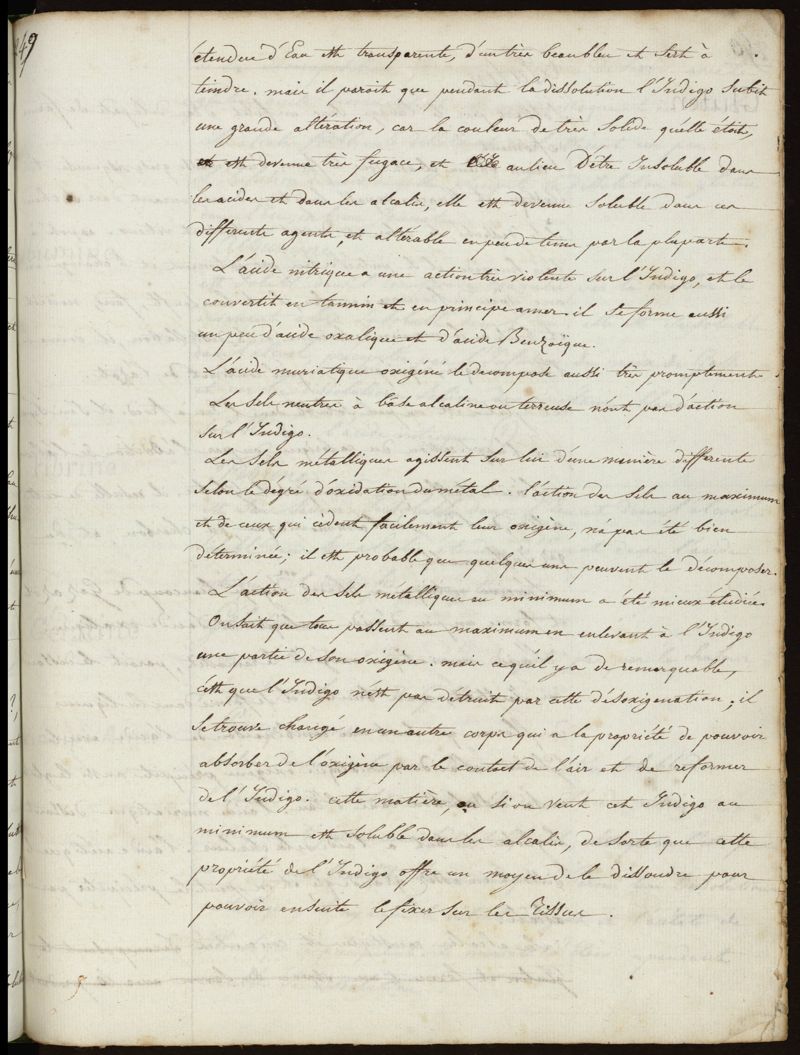 49
étendue d'Eau est transparente, d'un très beau bleu et sert à
teindre. mais il paroit que pendant la dissolution l'Indigo subit
une grande altération, car la couleur de très solide quelle étoit,
est devenue très fugace, et au lieu D'être Insoluble dans
les acides et dans les alcalis, elle est devenue soluble dans ces
differents agents, et altérable en peu de tems par la plupart.
L'acide nitrique a une action très violente sur l'Indigo, et le
convertit en tannin et en principe amer. il se forme aussi
un peu d'acide oxalique et d'acide Benzoïque.
L'acide muriatique oxigéné le decompose aussi très promptement.
Les Sels neutres à base alcaline ou terreuse n'ont pas d'action
sur l'Indigo.
Les Sels métalliques agissent sur lui d'une manière differente
selon le dégré d'oxidation du métal. l'action des Sels au maximum
et de ceux qui cèdent facilement leur oxigène, n'a pas été bien
déterminée; il est probable que quelques uns peuvent le décomposer.
L'action des Sels métalliques au minimum a été mieux étudiée.
On sait que tous passent au maximum en enlevant à l'Indigo
une partie de son oxigène. mais ce qu'il y a de remarquable,
c'est que l'Indigo n'est pas détruit par cette désoxigenation, il
se trouve changé en un autre corps qui a la propriété de pouvoir
absorber de l'oxigène par le contact de l'air et de reformer
de l'Indigo. cette matière, ou si on veut cet Indigo au
minimum est soluble dans les alcalis, de sorte que cette
propriété de l'Indigo offre un moyen de le dissoudre pour
pouvoir ensuite le fixer sur les Tissus.